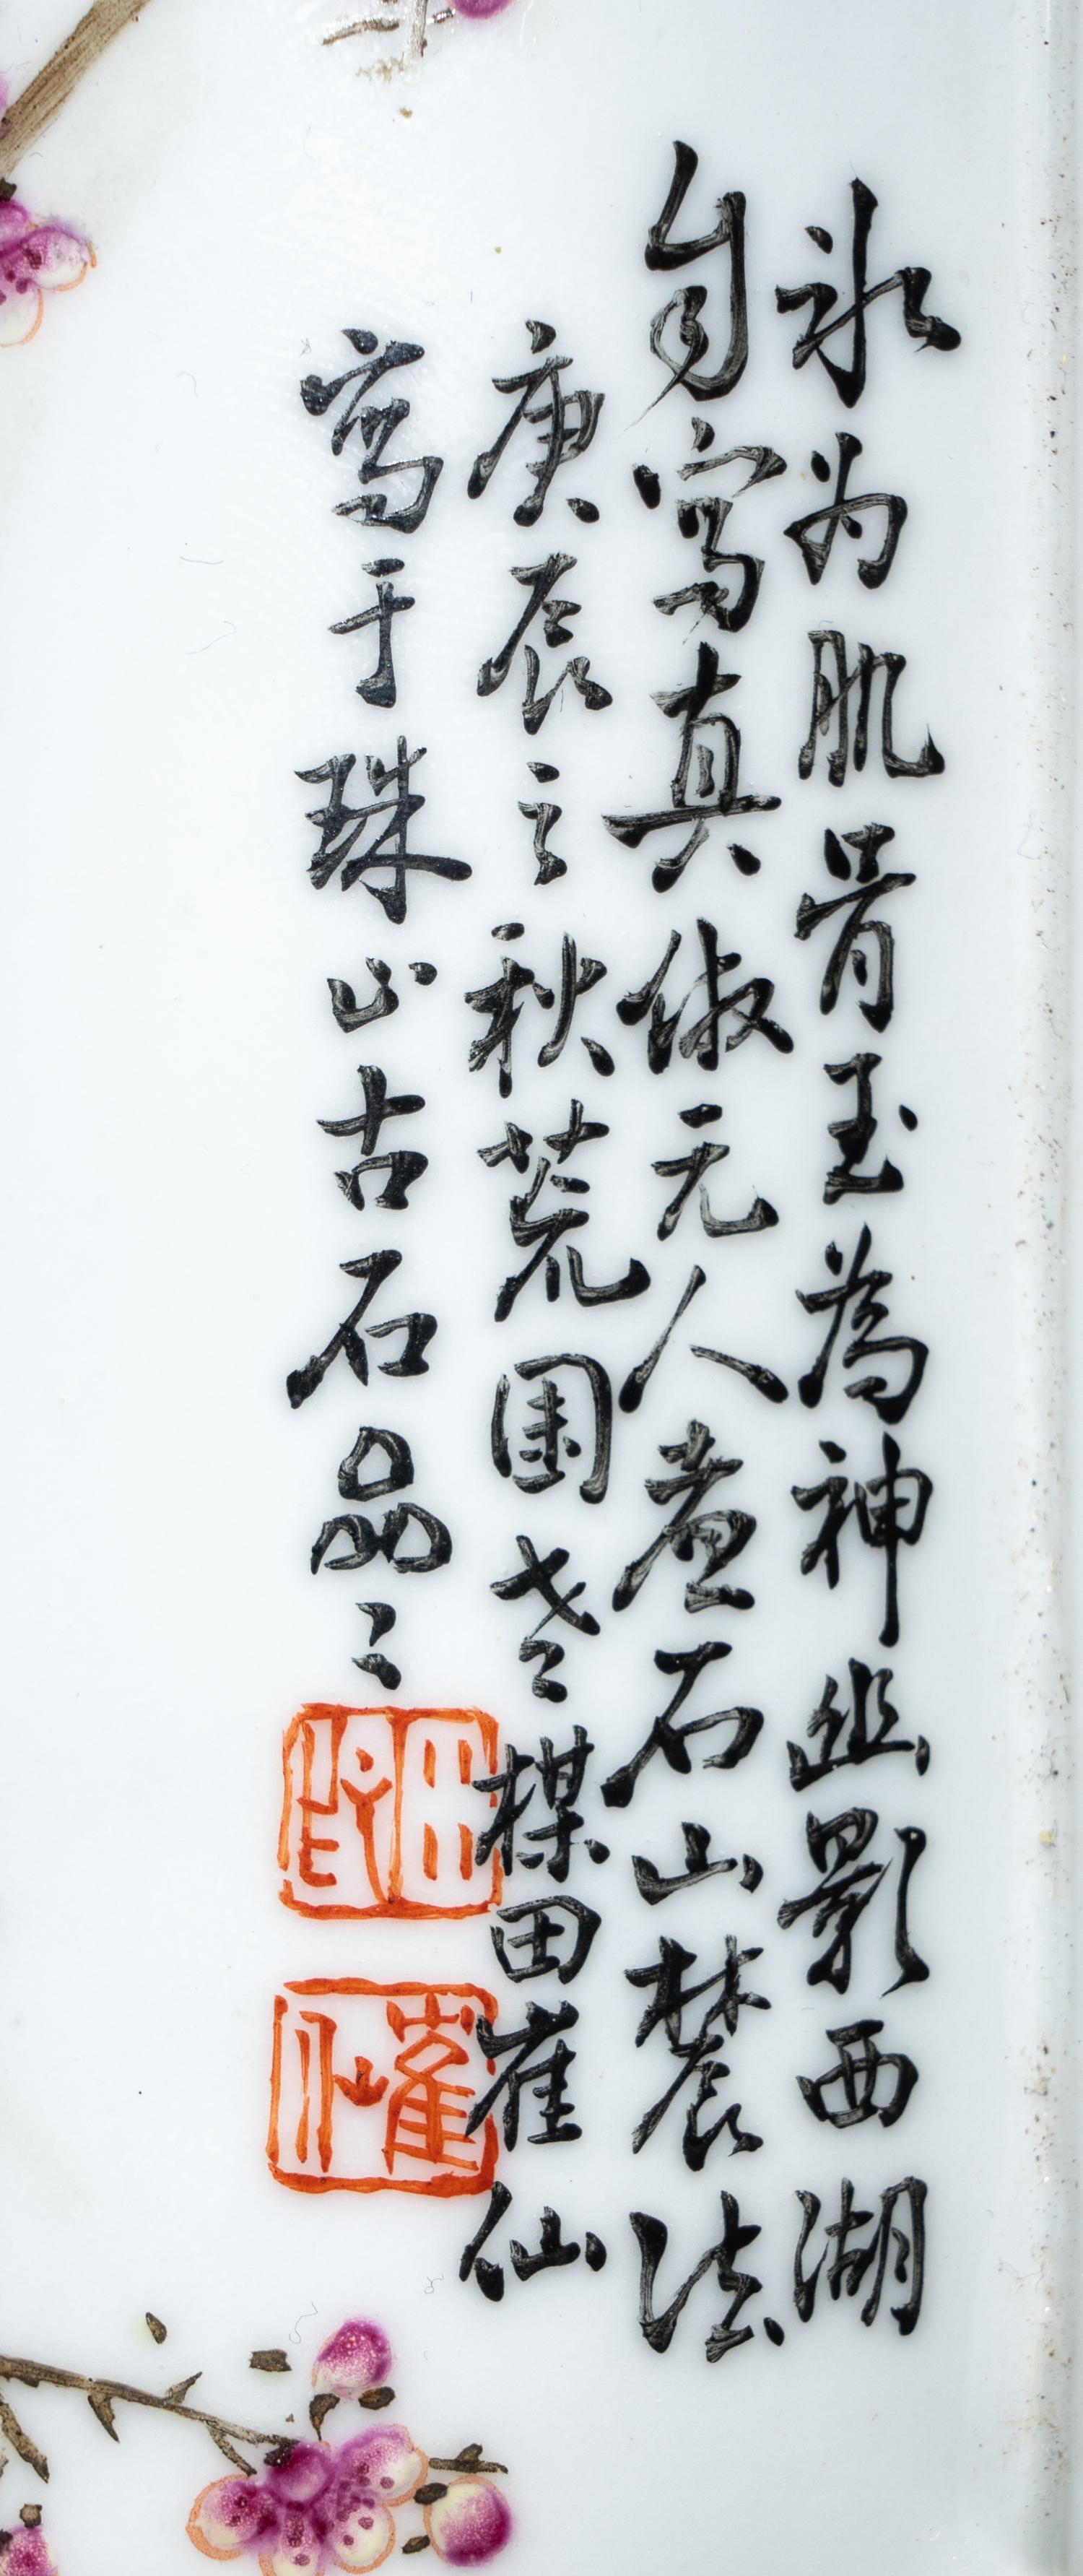 冰为肌骨玉為神幽影西湖
自寫真倣元人煮石山農法
庚辰之秋荒園老楳田崔仙
寫于珠山古石品之
田
崔仙